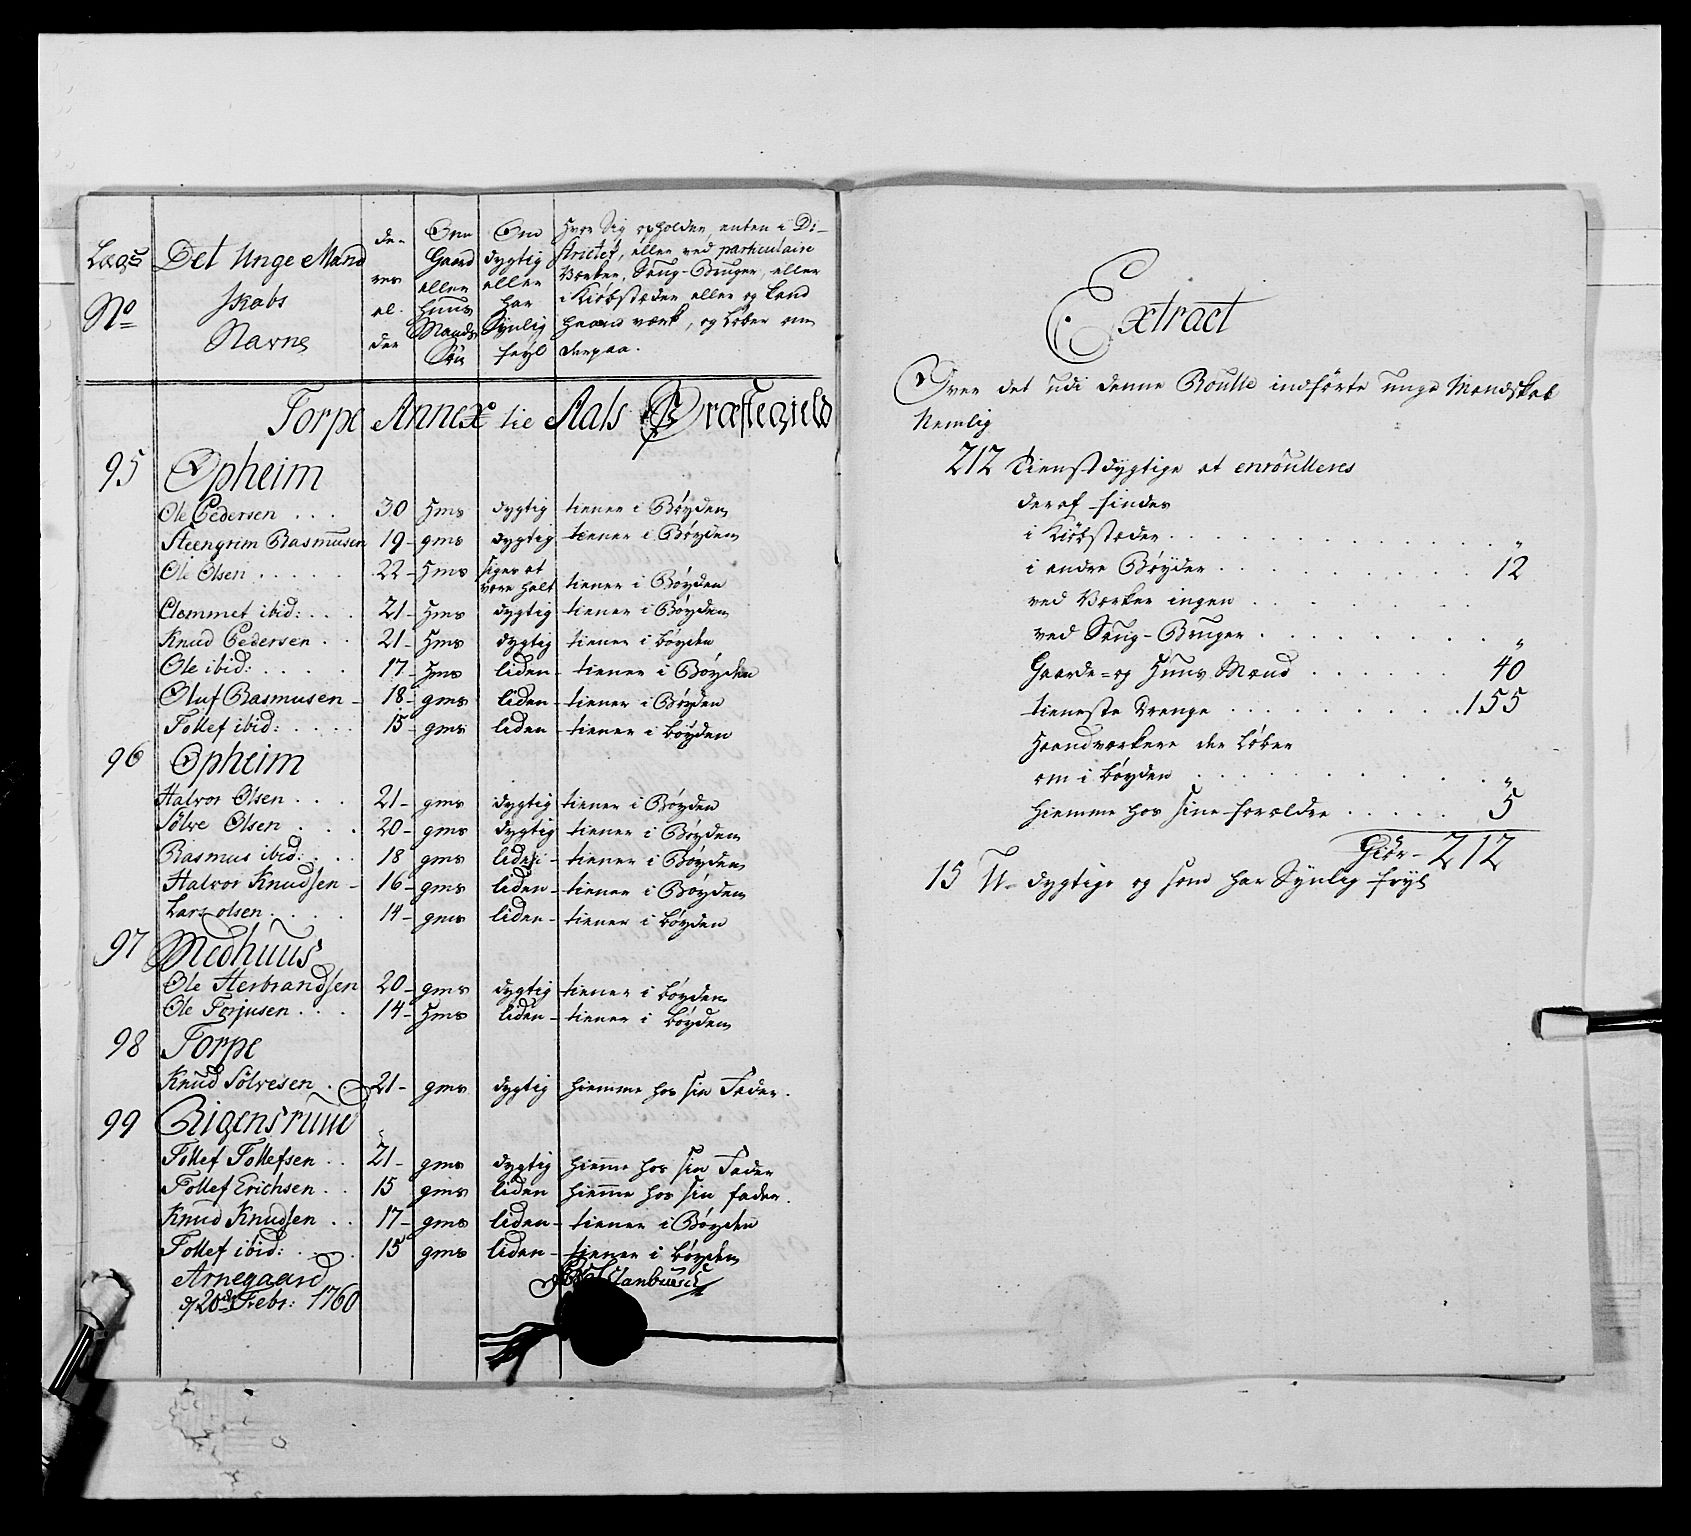 Lægs No
Det Unge Mand skabs Navne
deres alder
Om Gaard eller Huus Mands Søn
Om dygtig eller har Synlig feyl
Hvor Sig opholder, enten i Districtet, eller ved particulaire Værker, Saug-Bruger, eller i Kiøbstæder eller og kand haand værk, og løber om derpaa.
Torpe Annex til Aals Præstegield
95 Opheim
Ole Pedersen . . . 30 Hms dygtig tiener i Bøyden
Steengrim Rasmusen 19 - gms dygtig tiener i Bøyden
Ole Olsen . . . . . 22 - Hms siger at være halt tiener i Bøyden
Clemmet ibid: . . . 21 - Hms dygtig tiener i Bøyden
Knud Pedersen . . 21 - Hms dygtig tiener i bøyden
Ole ibid: . . . . . 17 - Hms liden - tiener i Bøyden
Oluf Rasmusen - 18 - gms liden - tiener i Bøyden
Tollef ibid: . . . . 15 - gms liden - tiener i bøyden
96 Opheim
Halvor Olsen . . . 21 - gms dygtig tiener i Bøyden
Sølve Olsen . . . 20 - gms dygtig tiener i Bøyden
Rasmus ibid: . . . 18 gms liden - tiener i Bøyden
Halvor Knudsen - 16 - gms liden - tiener i Bøyden
Lars olsen . . . . 14 - gms liden - tiener i bøyden
97 Medhuus
Ole Herbrandsen 20 - gms dygtig tiener i bøyden
Ole Torjusen . . . 14 - Hms liden - tiener i bøyden
98 Torpe
Knud Sølvesen . 21 - gms dygtig hiemme hos sin Fader .
99 Rigensruud
Tollef Tollefsen . . 21 - gms dygtig hieme hos sin Fader
Tollef Erichsen . . 15 gms liden hieme hos sin fader .
Knud Knudsen . . 17 - gms liden - tiener i Bøyden
Tollef ibid: . . . . 15 gms liden - tiener i bøyden
Arnegaard
d 20de Febr: 1760
Extract
Over det udi denne Roulle indførte unge Mandskab
Nemlig
212 tienstdygtige at enroulleres
deraf findes
i Kiøbstæder . . . . . . . . "
i andre Bøyder . . . . . . . . 12
ved Værker ingen . . . . . . .
ved Saug-Bruger . . . . . . . "
Gaarde= og Huus Mænd . . . . . . 40
tieneste Drenge . . . . . . . . 155
Haandværkere der løber
om i bøyden . . . . . . . . "
hiemme hos sine forældre . . . . . 5
Giør - 212
15 U- dygtige og som har Synlig feyl